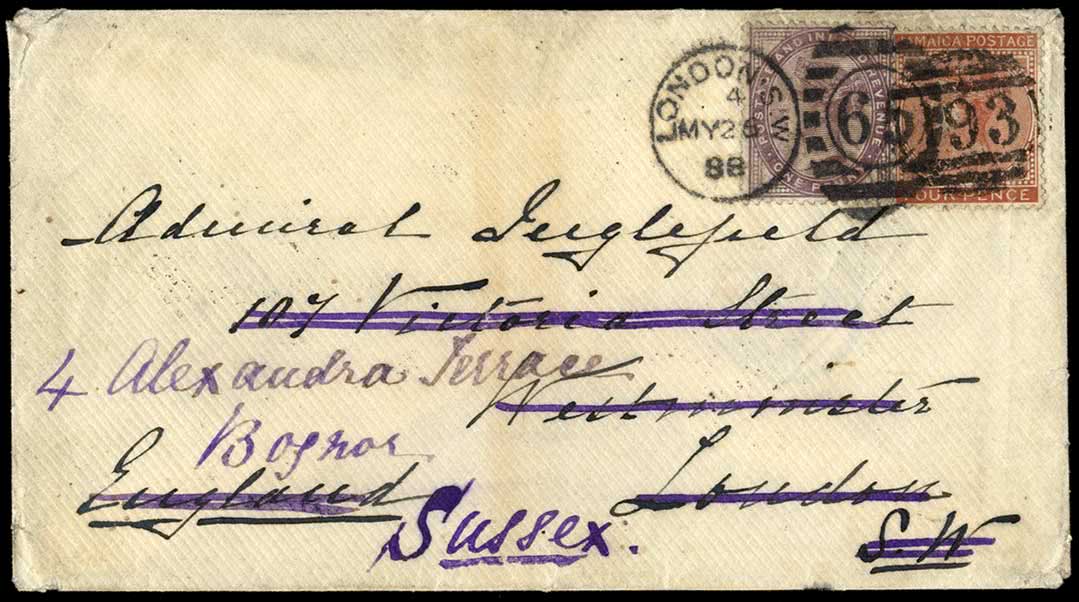 JAMAICA POSTAGE
POSTAGE AND INLAND REVENUE
ONE PENNY
FOUR PENCE
LONDON S.W
4
MY 26
88
65
93
Admiral Inglefield
107 Victoria Street
4 Alexandra Terrace
Westminster
Bognor
England
London
Sussex.
S.W